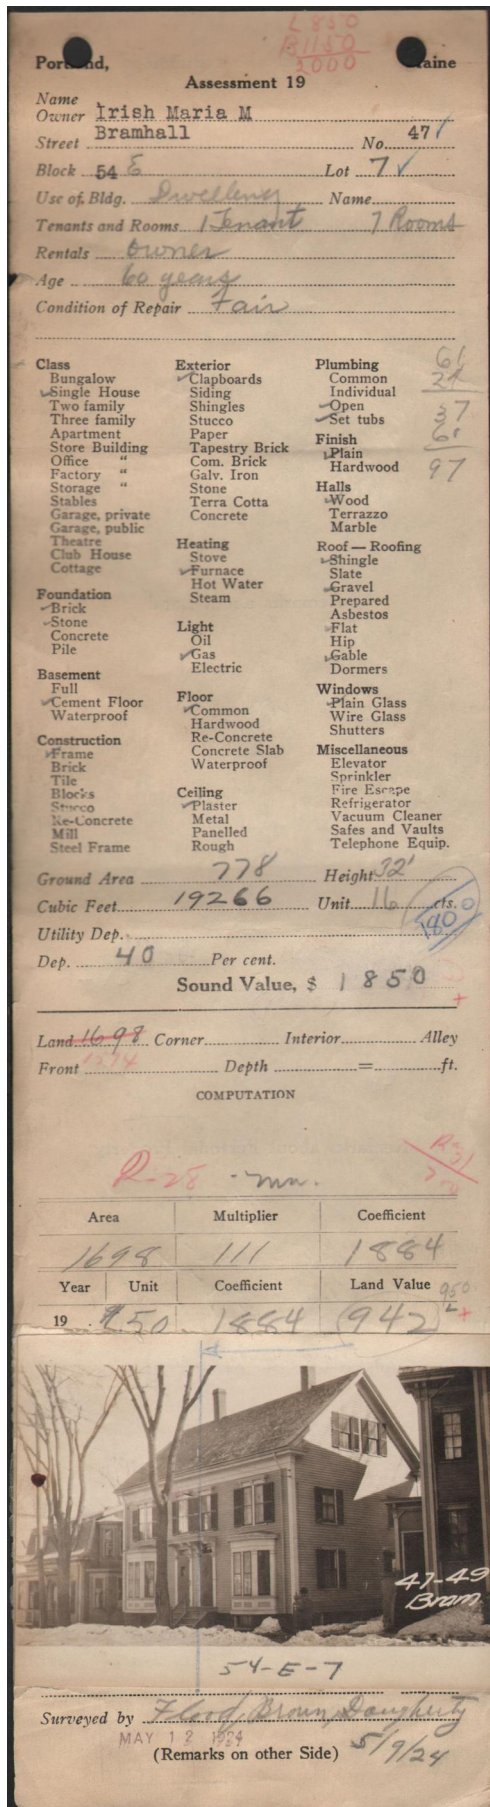 L 850
B 1150
2000
Portland, Maine
Assessment 19
Name
Owner Irish Maria M
Street Bramhall No. 47
Block 54 E Lot 7
Use of Bldg. Dwelling Name
Tenants and Rooms 1 Tenant 7 Rooms
Rentals owner
Age 60 years
Condition of Repair Fair
Class
Bungalow
Single House
Two family
Three family
Apartment
Store Building
Office "
Factory "
Storage "
Stables
Garage, private
Garage, public
Theatre
Club House
Cottage
Foundation
Brick
Stone
Concrete
Pile
Basement
Full
Cement Floor
Waterproof
Construction
Frame
Brick
Tile
Blocks
Stucco
Re-Concrete
Mill
Steel Frame
Exterior
Clapboards
Siding
Shingles
Stucco
Paper
Tapestry Brick
Com. Brick
Galv. Iron
Stone
Terra Cotta
Concrete
Heating
Stove
Furnace
Hot Water
Steam
Light
Oil
Gas
Electric
Floor
Common
Hardwood
Re-Concrete
Concrete Slab
Waterproof
Ceiling
Plaster
Metal
Panelled
Rough
Plumbing
Common
Individual
Open
Set tubs
Finish
Plain
Hardwood
Halls
Wood
Terrazzo
Marble
Roof — Roofing
Shingle
Slate
Gravel
Prepared
Asbestos
Flat
Hip
Gable
Dormers
Windows
Plain Glass
Wire Glass
Shutters
Miscellaneous
Elevator
Sprinkler
Fire Escape
Refrigerator
Vacuum Cleaner
Safes and Vaults
Telephone Equip.
61
37
97
Ground Area 778 Height 32'
Cubic Feet 19266 Unit 16 cts.
Utility Dep.
Dep. 40 Per cent.
Sound Value, $ 1850
Land 1698 Corner Interior Alley
Front Depth = ft.
COMPUTATION
R-28
Area Multiplier Coefficient
1698 111 1884
Year Unit Coefficient Land Value
19 .50 1884 (942) 950
47-49
Bram
54-E-7
Surveyed by Flood, Brown, Dougherty
MAY 12 1924 5/9/24
(Remarks on other Side)